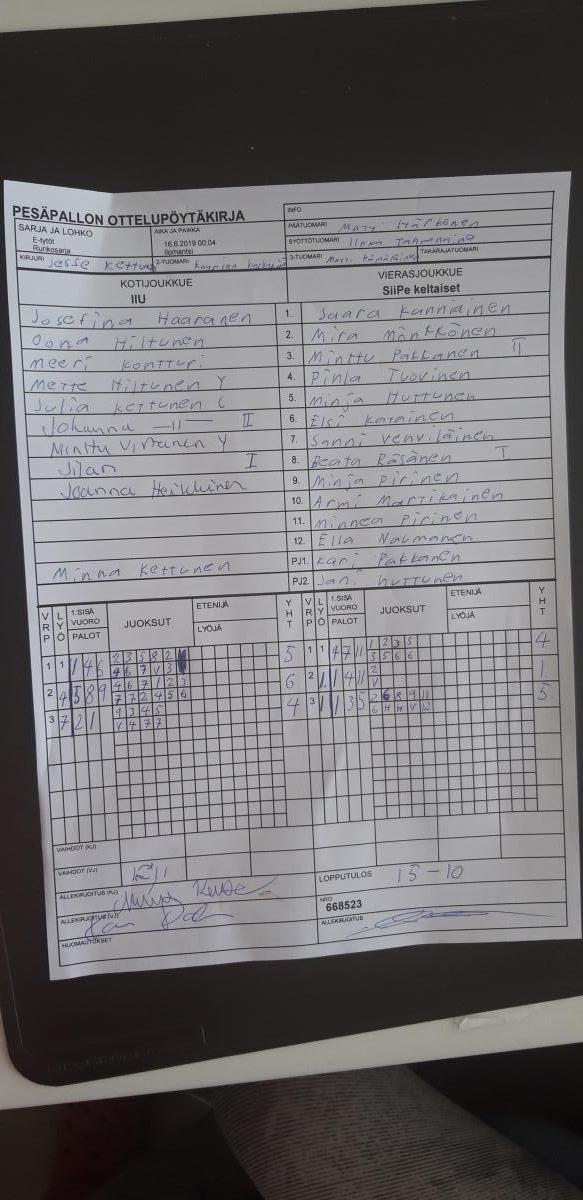 PESÄPALLON OTTELUPÖYTÄKIRJA
INFO
SARJA JA LOHKO
E-tytöt
Runkosarja
AIKA JA PAIKKA
16.6.2019 00:04
Ilomantsi
PÄÄTUOMARI
SYÖTTÖTUOMARI
KIRJURI Jesse Kettunen
2-TUOMARI
3-TUOMARI
TAKARAJATUOMARI
KOTIJOUKKUE
IIU
VIERASJOUKKUE
SiiPe keltaiset
Josefina Haaranen 1. Saara Kanniainen
Oona Hiltunen 2. Mira Mönkkönen
Meeri Kontturi 3. Minttu Pakkanen II
Mette Hiltunen Y 4. Pinla Tuovinen
Julia Kettunen C 5. Minja Huttunen
Johanna —11— II 6. Elsi
Minttu Virtanen Y 7. Sanni Venviläinen
I 8. Beata Räsänen I
Joanna Heikkinen 9. Minja Pirinen
10. Armi Martikainen
11. Minnea Pirinen
12. Ella Naumanen
Minna Kettunen PJ1. Kari Pakkanen
PJ2. Jani Huttunen
VRP LYÖ 1.SISÄ VUORO PALOT JUOKSUT ETENIJÄ LYÖJÄ YHT VRP LYÖ 1.SISÄ VUORO PALOT JUOKSUT ETENIJÄ LYÖJÄ YHT
1 1 1 4 6 2 3 5 8 2 5 1 1 4 7 11 1 2 3 5 4
3 5 6 6
2 4 5 8 9 4 6 7 1 2 3 6 2 1 1 4 11 2 1
7 7 2 4 5 6 V
3 7 2 1 4 3 4 5 4 3 1 1 3 5 2 6 8 9 11 5
Y 4 7 7 6 H H V 12
VAIHDOT (KJ)
VAIHDOT (VJ)
ALLEKIRJOITUS (KJ)
LOPPUTULOS 15-10
ALLEKIRJOITUS (VJ)
NRO
668523
HUOMAUTUKSET
ALLEKIRJOITUS